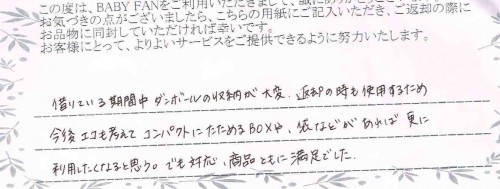 この度は、BABY FANをご利用いただきまして、誠にありがとうござ
お気づきの点がございましたら、こちらの用紙にご記入いただき、ご返却の際に
お品物に同封していただければ幸いです。
お客様にとって、よりよいサービスをご提供できるように努力いたします。
借りている期間中ダンボールの収納が大変。返却の時も使用するため
今後エコも考えてコンパクトにたためるBOXや、袋などがあれば更に
利用したくなると思う。でも対応、商品ともに満足でした。